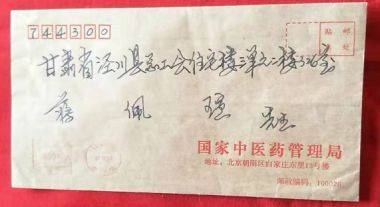 744300
贴 邮
票 处
甘肃省泾川县总工会住宅楼三单元二楼326室
薛佩瑾 先生
国家中医药管理局
地址：北京朝阳区白家庄东里13号楼
邮政编码：100026